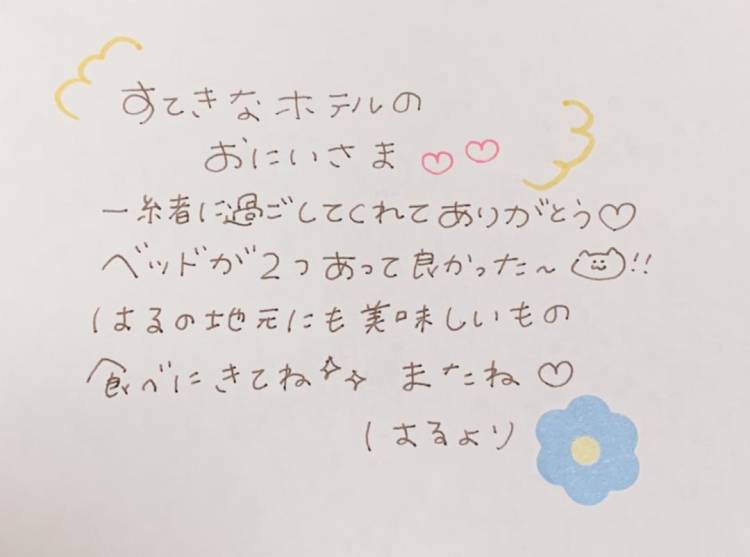 すてきなホテルの
おにいさま♡♡
一糸者に過ごしてくれてありがとう♡
ベッドが2つあって良かった〜!!
はるの地元にも美味しいもの
食べにきてね✧✧ またね♡
はるより